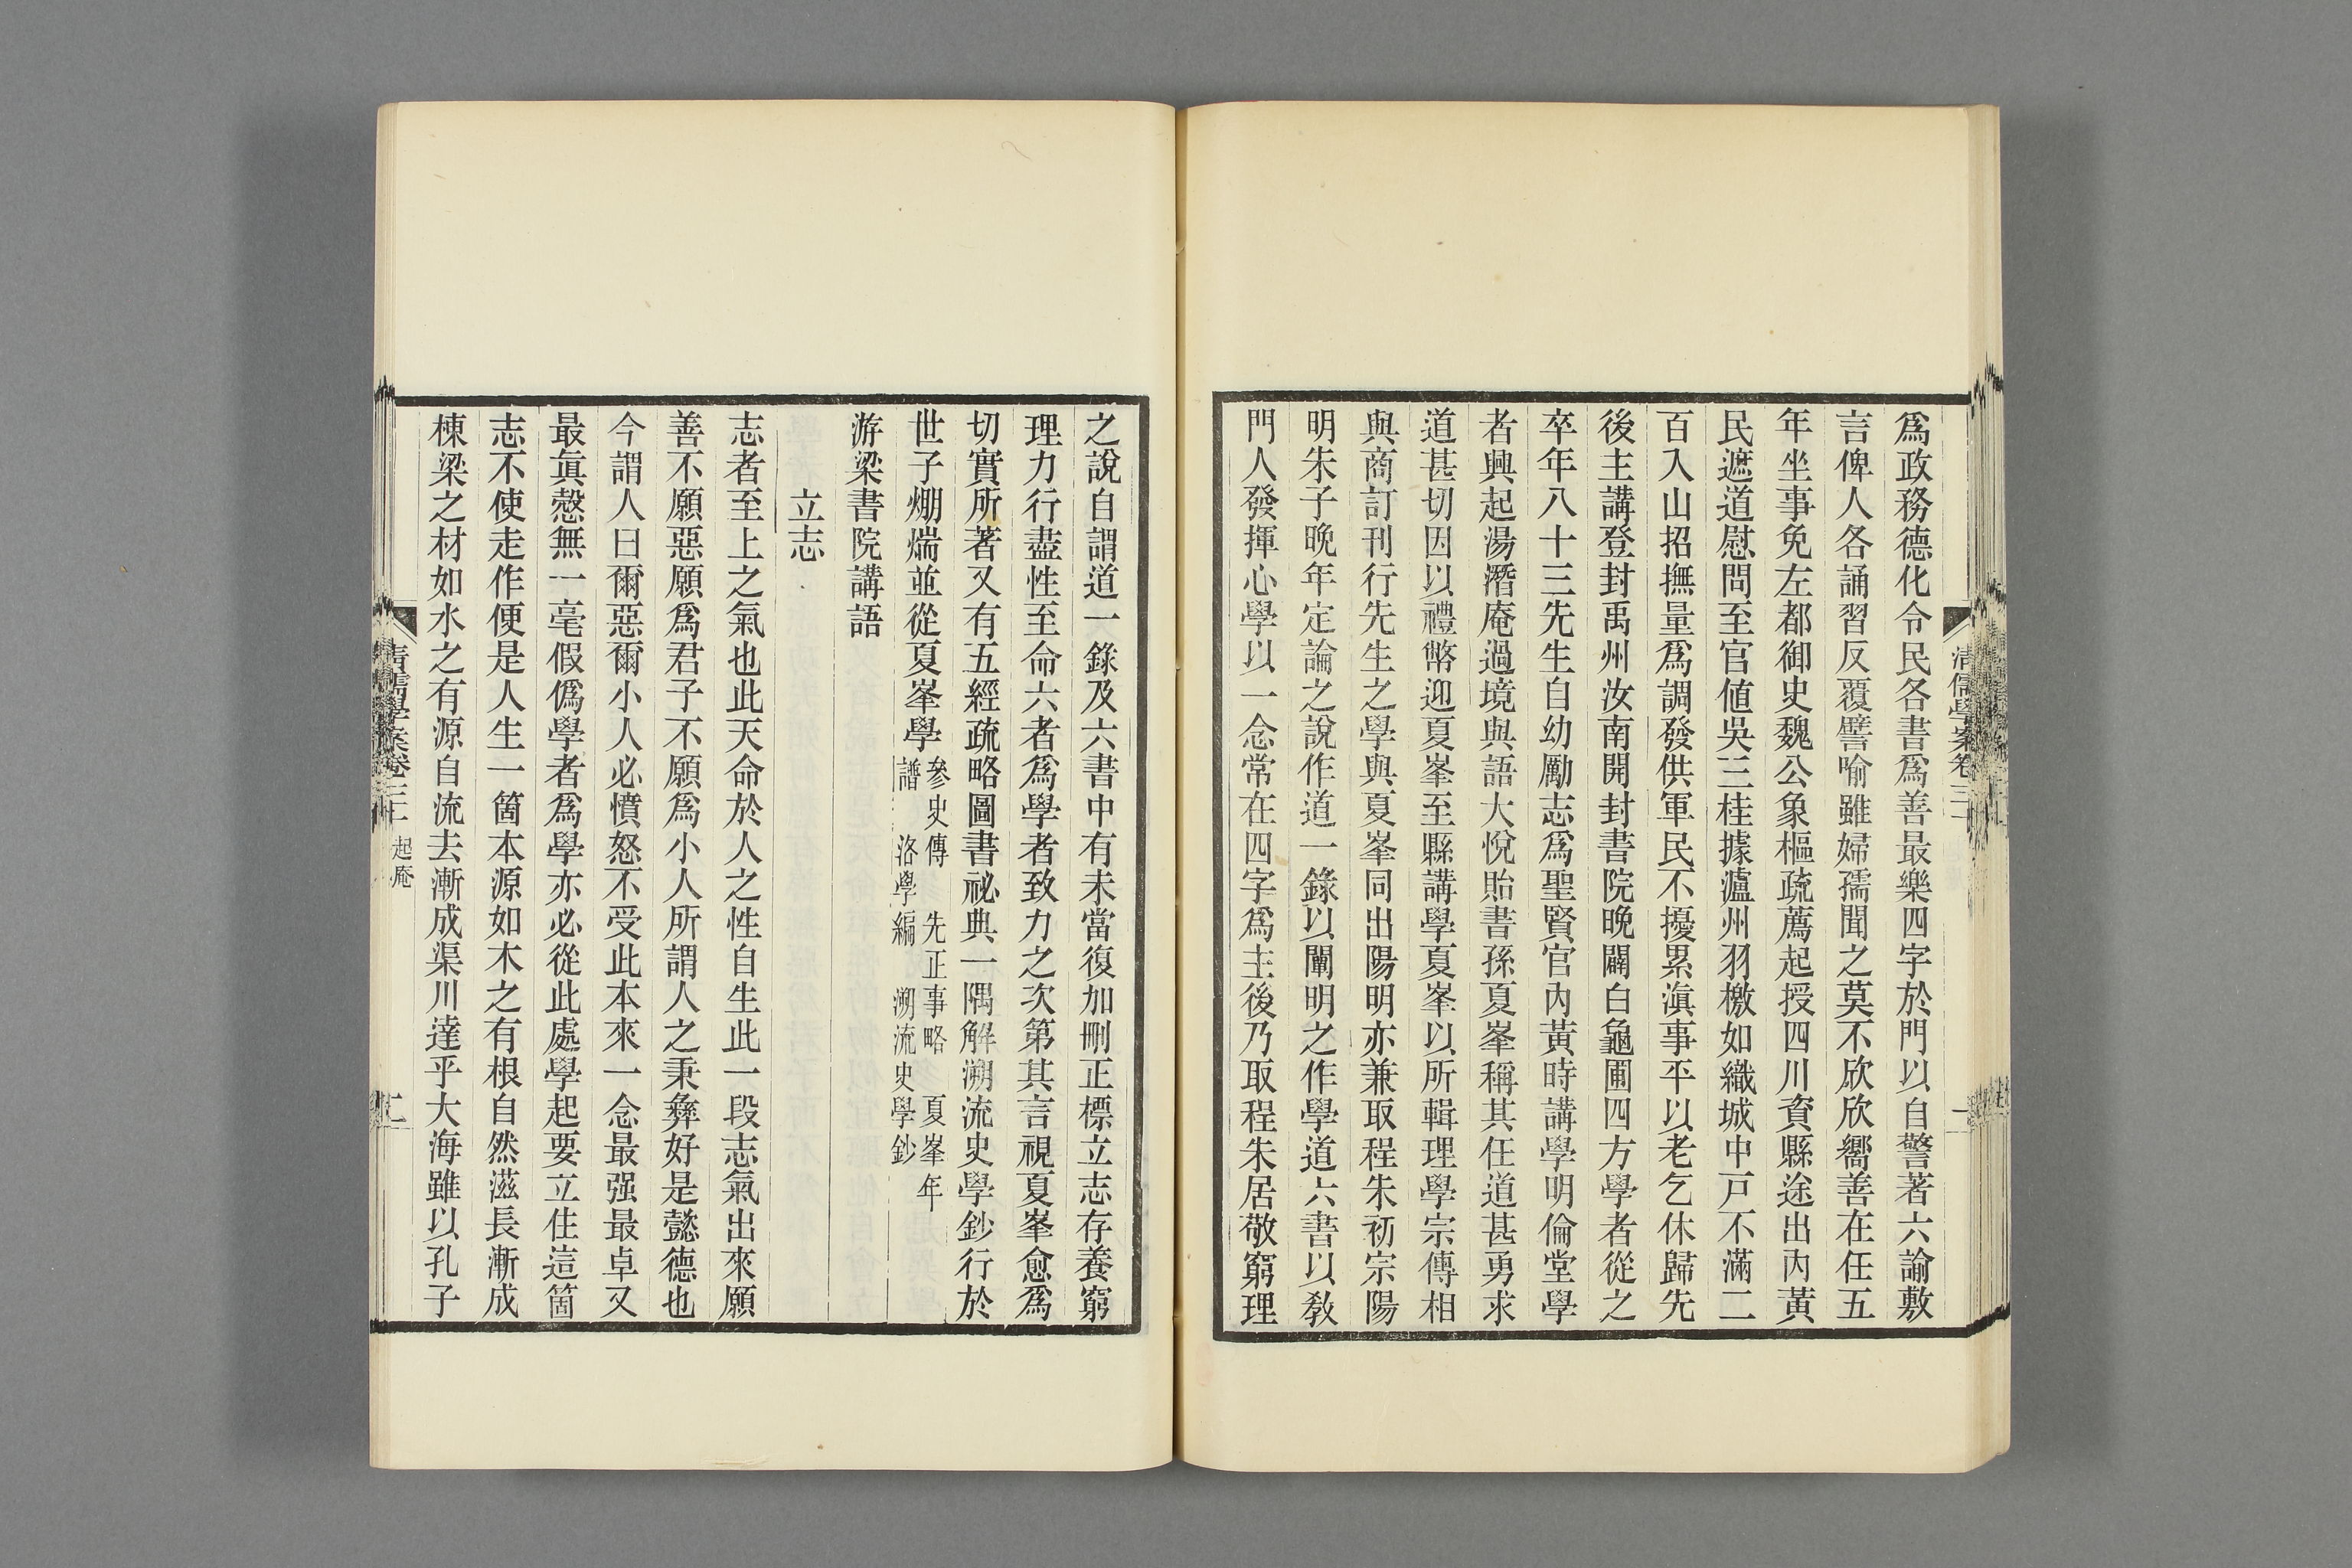 爲政務德化令民各書爲善最樂四字於門以自警著六諭敷
言俾人各誦習反覆譬喻雖婦孺聞之莫不欣欣嚮善在任五
年坐事免左都御史魏公象樞疏薦起授四川資縣途出內黃
民遮道慰問至官値吳三桂據瀘州羽檄如織城中戸不滿二
百入山招撫量爲調發供軍民不擾累滇事平以老乞休歸先
後主講登封禹州汝南開封書院晚闢白龜圃四方學者從之
卒年八十三先生自幼勵志爲聖賢官內黃時講學明倫堂學
者興起湯潛庵過境與語大悅貽書孫夏峯稱其任道甚勇求
道甚切因以禮幣迎夏峯至縣講學夏峯以所輯理學宗傳相
與商訂刊行先生之學與夏峯同出陽明亦兼取程朱初宗陽
明朱子晚年定論之說作道一錄以闡明之作學道六書以敎
門人發揮心學以一念常在四字爲主後乃取程朱居敬窮理
之說自謂道一錄及六書中有未當復加刪正標立志存養窮
理力行盡性至命六者爲學者致力之次第其言視夏峯愈爲
切實所著又有五經疏略圖書祕典一隅解溯流史學鈔行於
世子㷯煓並從夏峯學 參史傳 先正事略 夏峯年
譜 洛學編 溯流史學鈔
游梁書院講語
立志
志者至上之氣也此天命於人之性自生此一段志氣出來願
善不願惡願爲君子不願爲小人所謂人之秉彝好是懿德也
今謂人曰爾惡爾小人必憤怒不受此本來一念最强最卓又
最眞愨無一毫假僞學者爲學亦必從此處學起要立住這箇
志不使走作便是人生一箇本源如木之有根自然滋長漸成
棟梁之材如水之有源自流去漸成渠川達乎大海雖以孔子
清儒學案卷三十 起庵